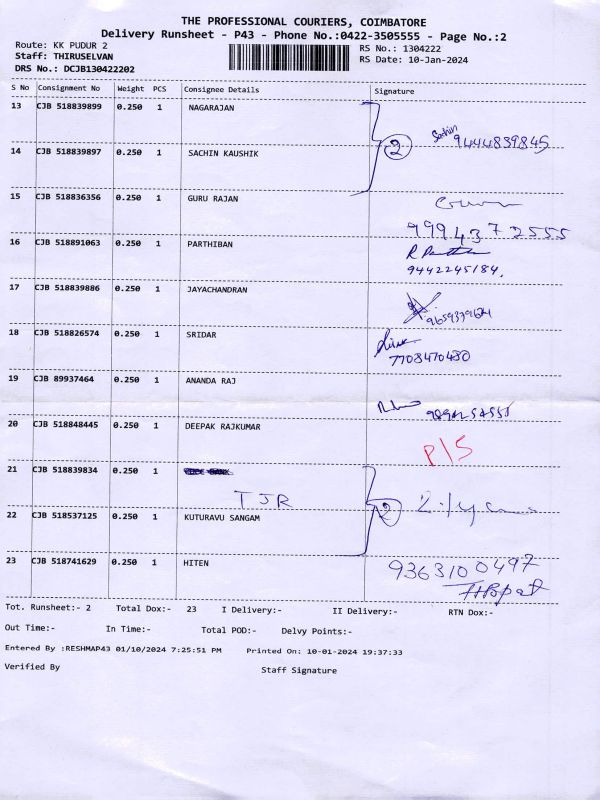 THE PROFESSIONAL COURIERS, COIMBATORE
Delivery Runsheet - P43 - Phone No.:0422-3505555 - Page No.:2
Route: KK PUDUR 2
RS No.: 1304222
Staff: THIRUSELVAN
RS Date: 10-Jan-2024
DRS No.: DCJB130422202
S No Consignment No Weight PCS Consignee Details Signature
13 CJB 518839899 0.250 1 NAGARAJAN
2 Sachin 9444839845
14 CJB 518839897 0.250 1 SACHIN KAUSHIK
15 CJB 518836356 0.250 1 GURU RAJAN
9994372555
16 CJB 518891063 0.250 1 PARTHIBAN
9442245184.
17 CJB 518839886 0.250 1 JAYACHANDRAN
18 CJB 518826574 0.250 1 SRIDAR
7708470480
19 CJB 89937464 0.250 1 ANANDA RAJ
20 CJB 518848445 0.250 1 DEEPAK RAJKUMAR
P/S
21 CJB 518839834 0.250 1
TJR 2
22 CJB 518537125 0.250 1 KUTURAVU SANGAM
23 CJB 518741629 0.250 1 HITEN 9363100497
Tot. Runsheet:- 2 Total Dox:- 23 I Delivery:- II Delivery:- RTN Dox:-
Out Time:- In Time:- Total POD:- Delvy Points:-
Entered By :RESHMAP43 01/10/2024 7:25:51 PM Printed On: 10-01-2024 19:37:33
Verified By Staff Signature